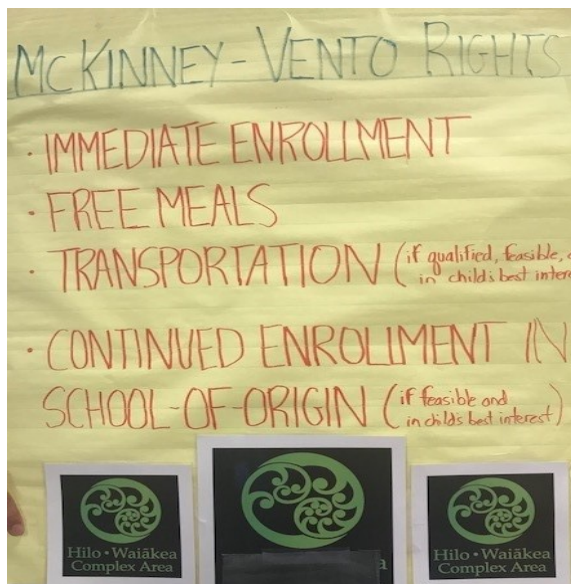 McKINNEY-VENTO RIGHTS
· IMMEDIATE ENROLLMENT
· FREE MEALS
· TRANSPORTATION (if qualified, feasible,
in child's best
· CONTINUED ENROLLMENT IN
SCHOOL-OF-ORIGIN (if feasible and
in child's best interest)
Hilo • Waiākea
Complex Area
Hilo • Waiākea
Complex Area